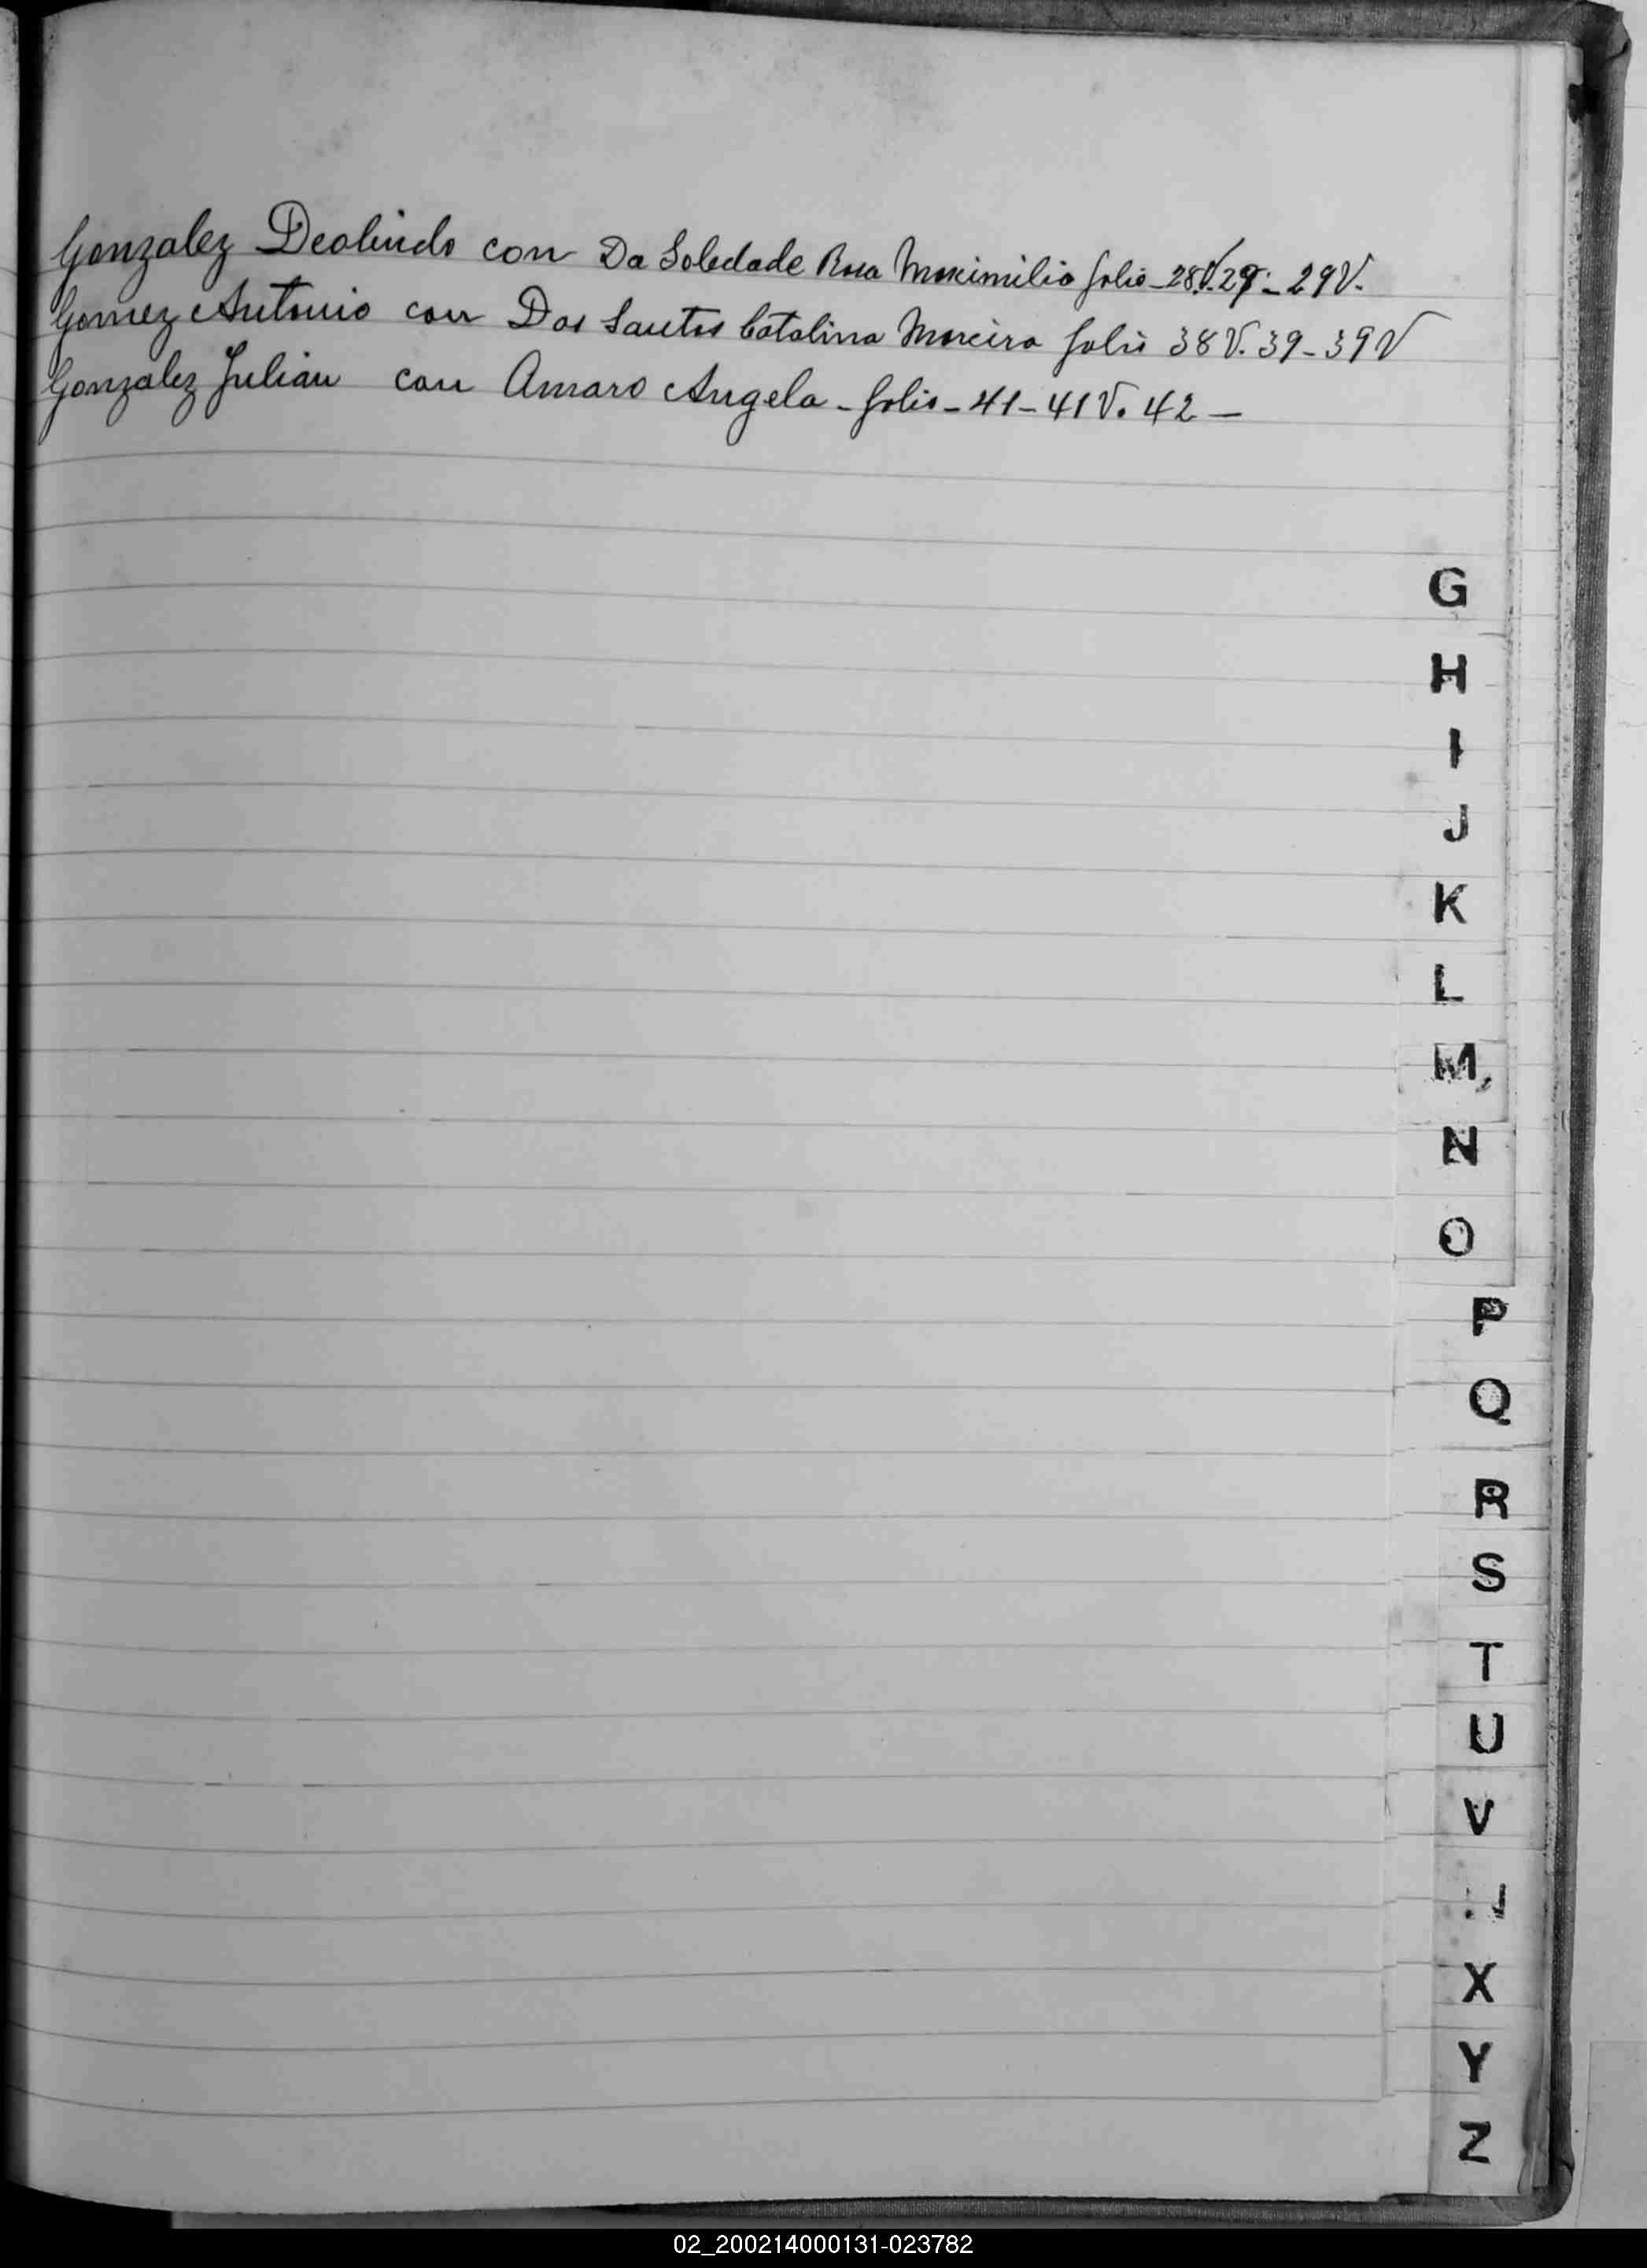 Gonzalez Deolindo con Da Soledade Rosa Maximilia folio - 28V. 29 - 29V.
Gomez Antonio con Dos Santos Catalina Moreira folio 38V. 39 - 39V
Gonzalez Julian con Amaro Angela - folio - 41 - 41V. 42 -
G
H
I
J
K
L
M
N
O
P
Q
R
S
T
U
V
X
Y
Z
02_200214000131-023782